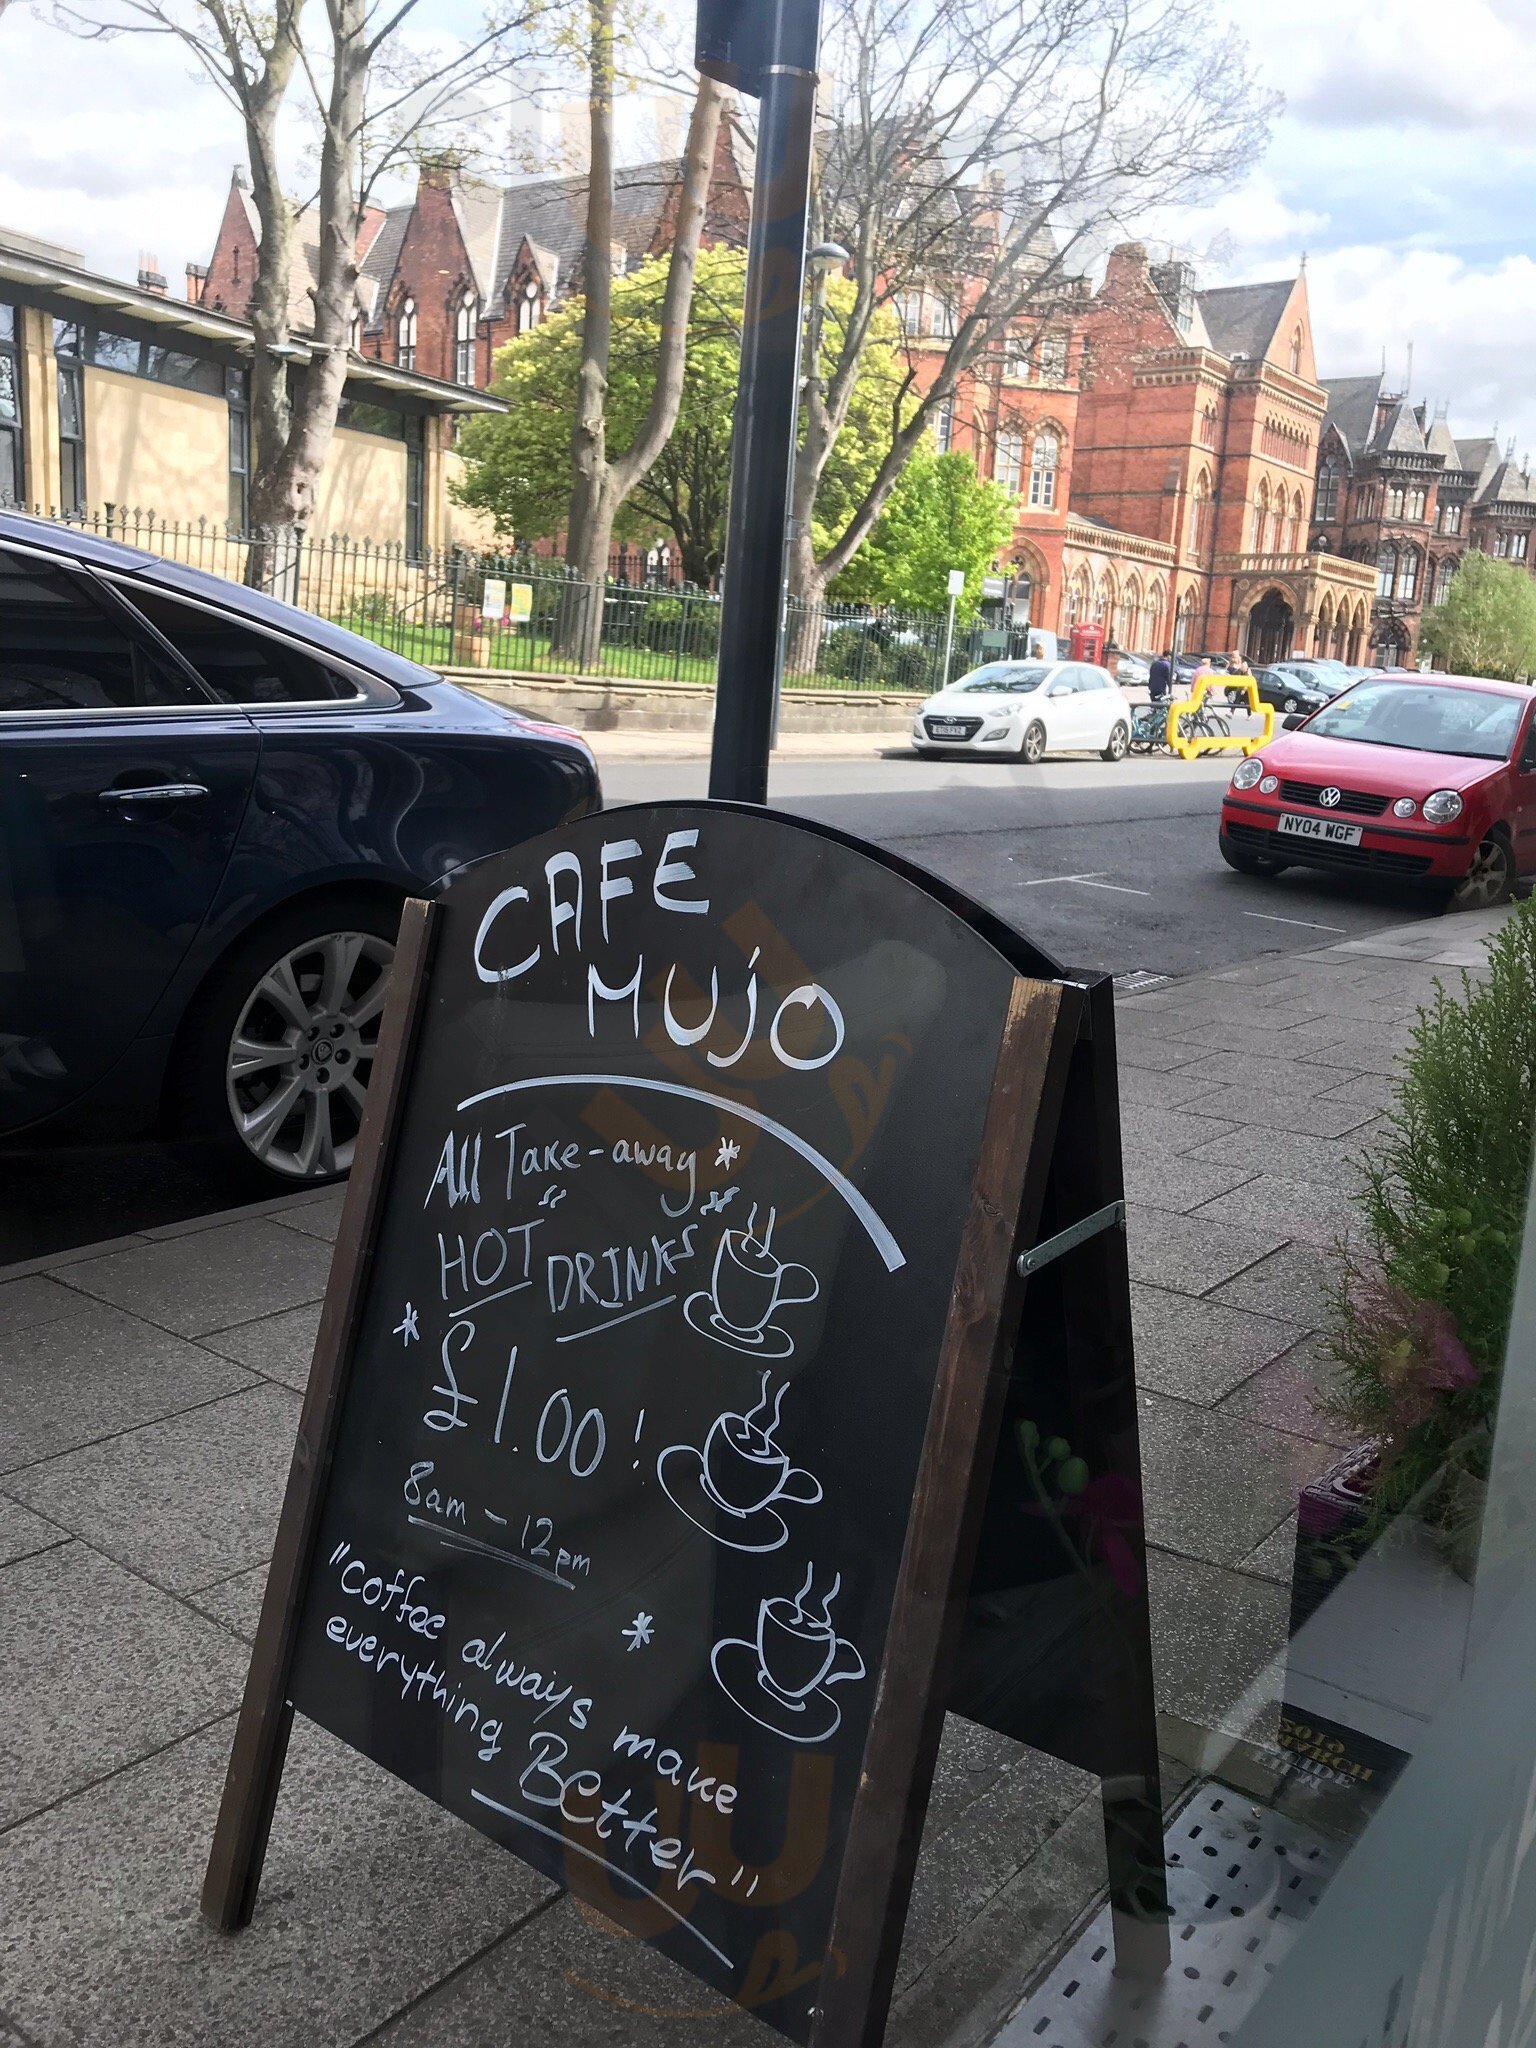 CAFE
MUjO
All Take-away *
HOT DRINKS
* £1.00!
8am - 12pm
*
"coffee always make
everything BEtter"
NY04 WGF
2019
MARCH
GUIDE